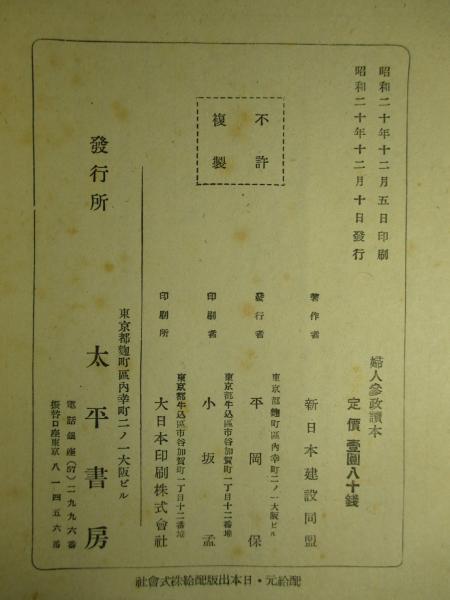 昭和二十年十二月五日印刷
昭和二十年十二月十日發行
婦人參政讀本
定價 壹圓八十錢
不許
複製
著作者 新日本建設同盟
東京都麴町區內幸町二ノ一大阪ビル
發行者 平岡保
東京都牛込區市谷加賀町一丁目十二番地
印刷者 小坂孟
東京都牛込區市谷加賀町一丁目十二番地
印刷所 大日本印刷株式會社
發行所
東京都麴町區內幸町二ノ一大阪ビル
太平書房
電話銀座(57)二九九六番
振替口座東京八一四五六番
配給元・日本出版配給株式會社